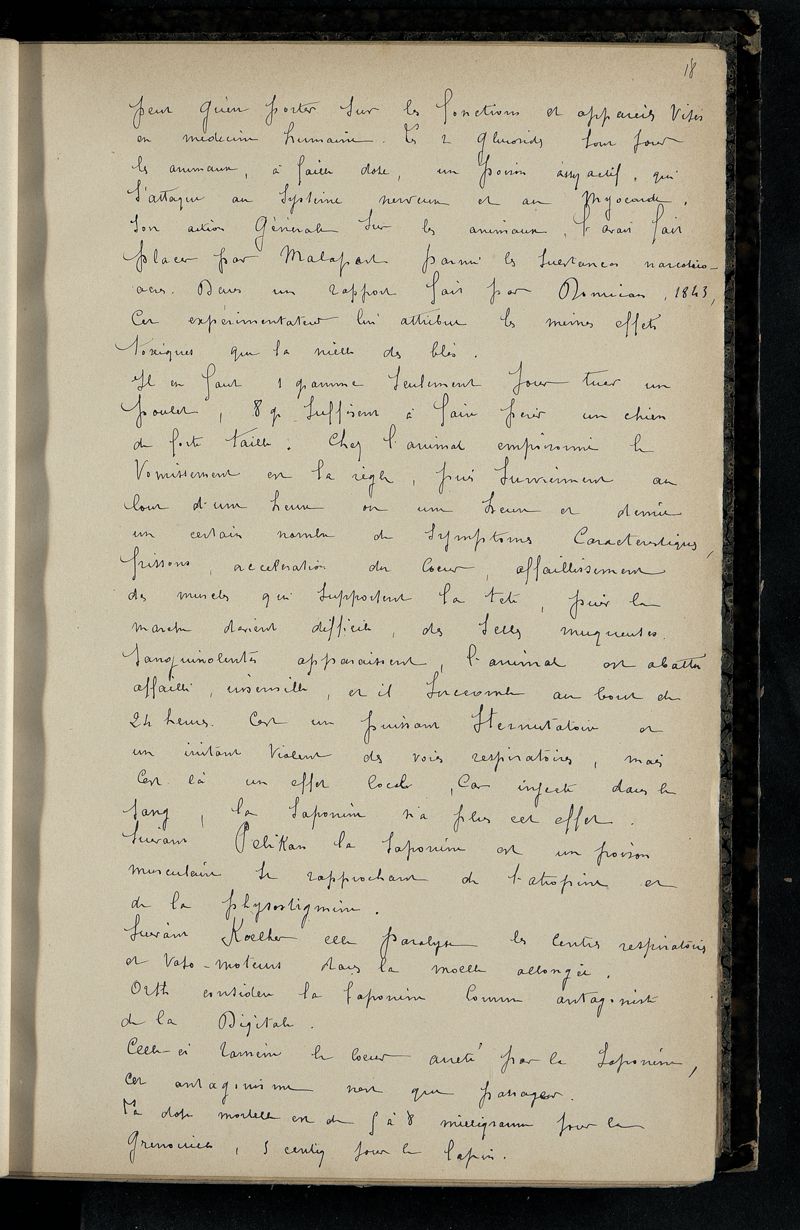 18
peut guère porter sur les fonctions et appareils visés
en médecine humaine. Les 2 glucosides sont pour
les animaux, à faible dose, un poison assez actif, qui
s'attaque au système nerveux et au myocarde.
Son action générale sur les animaux, l'avait fait
placer par Malapert parmi les substances narcotico-
acres. Dans un rapport fait par 1843,
Cet expérimentateur lui attribue les mêmes effets
toxiques que la nielle des blés.
Il en faut 1 gramme seulement pour tuer un
poulet, 8 gr suffisent à faire périr un chien
de forte taille. Chez l'animal empoisonné le
Vomissement est la règle, puis surviennent au
bout d'une heure ou une heure et demie
un certain nombre de symptômes caractéristiques,
frissons, acceleration du coeur, affaiblissement
des muscles qui supportent la tête, puis la
marche devient difficile, des selles muqueuses.
Sanguinolentes apparaissent, l'animal est abattu
affaibli, insensible, et il succombe au bout de
24 heures. C'est un puissant sternutatoire et
un irritant violent des voies respiratoires, mais
c'est là un effet local, car injecté dans le
sang, la saponine n'a plus cet effet.
Suivant Pelikan la saponine est un poison
musculaire se rapprochant de l'atropine et
de la physostigmine.
Suivant Koelher elle paralyse les centres respiratoires
et vaso-moteurs dans la moelle allongée.
Orth considère la saponine comme antagoniste
de la Digitale.
Celle-ci ramène le coeur arrêté par la saponine,
cet antagonisme n'est que passager.
La dose mortelle est de 5 à 8 milligramme pour la
Grenouille, 5 centig pour le lapin.